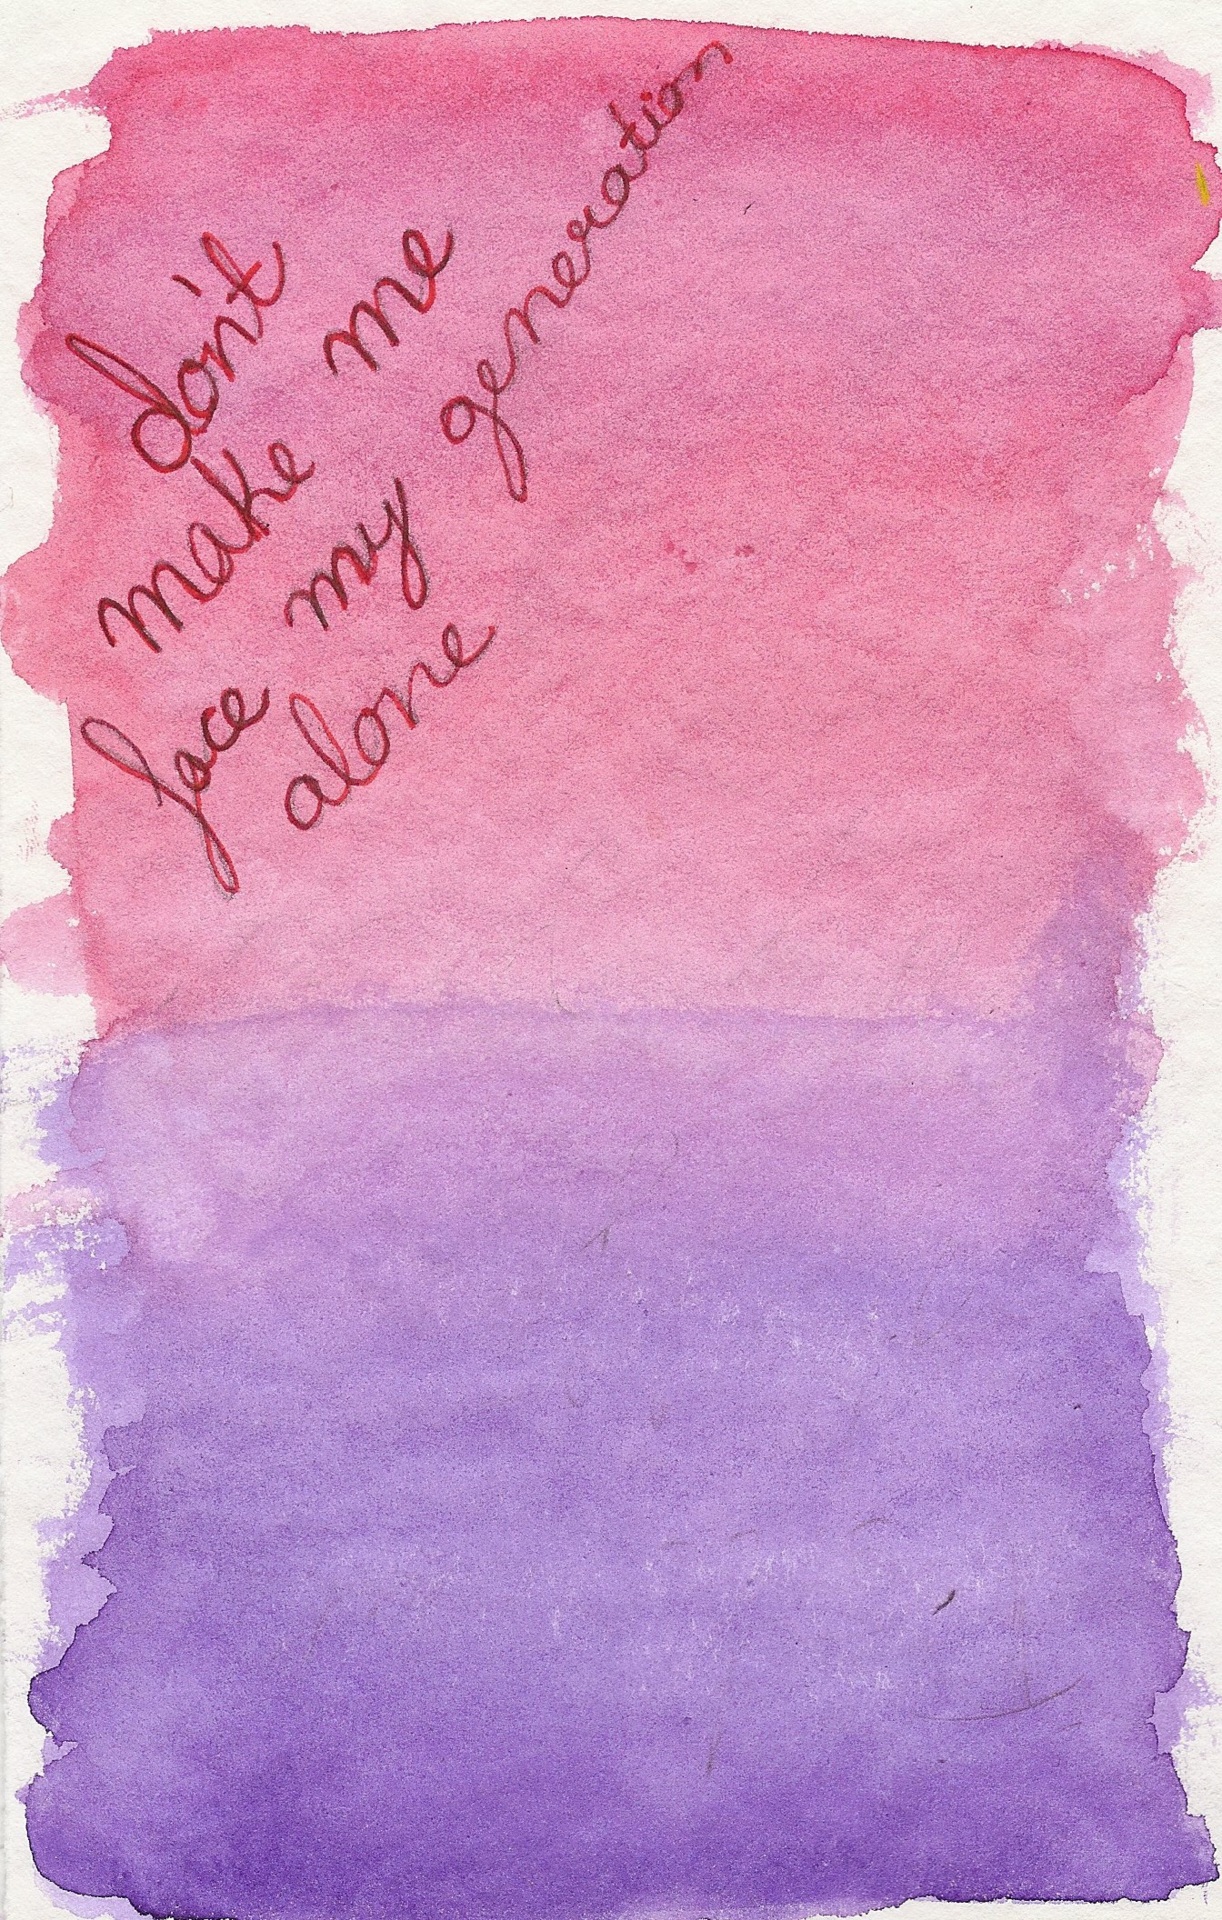 don't
make me
face my generation
alone